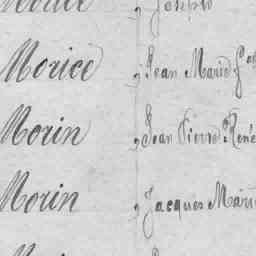 Joseph
Morice, Jean Marie
Morin, Jean Pierre René
Morin, Jacques Marie